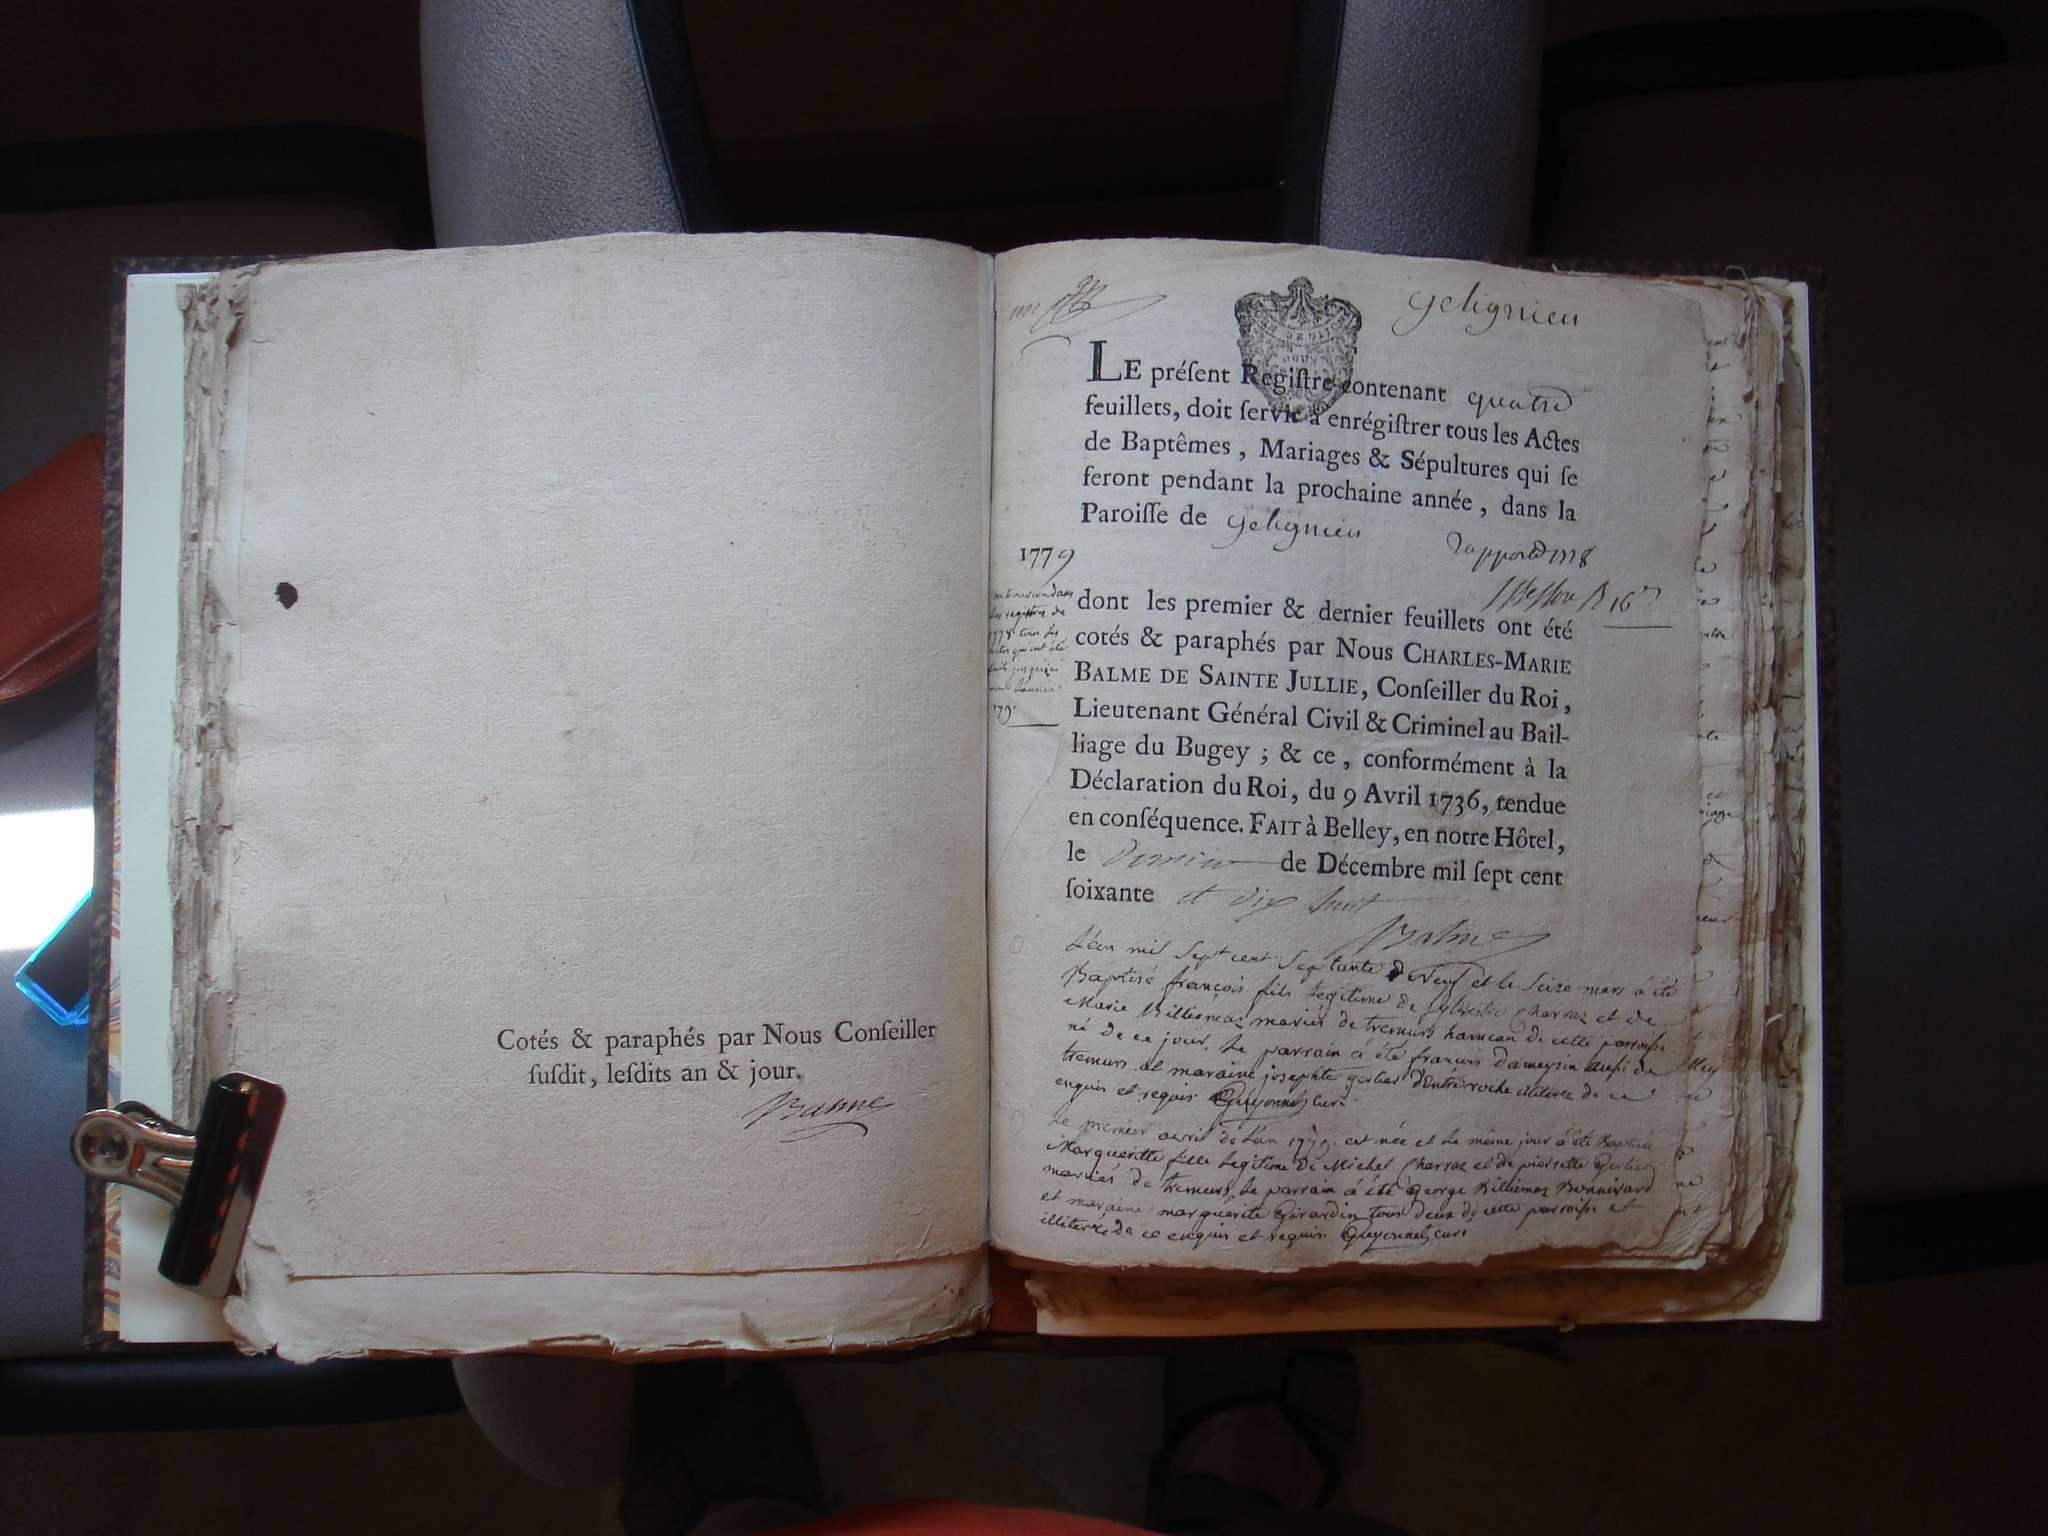 Cotés & paraphés par Nous Conſeiller
ſuſdit, leſdits an & jour.
Balme
un
gelignieu
LE préſent Regiſtre contenant quatre
feuillets, doit ſervir à enrégiſtrer tous les Actes
de Baptêmes, Mariages & Sépultures qui ſe
feront pendant la prochaine année, dans la
Paroiſſe de gelignieu
1779
rapporté 1778
dont les premier & dernier feuillets ont été
cotés & paraphés par Nous CHARLES-MARIE
BALME DE SAINTE JULLIE, Conſeiller du Roi,
Lieutenant Général Civil & Criminel au Bail-
liage du Bugey ; & ce, conformément à la
Déclaration du Roi, du 9 Avril 1736, rendue
en conſéquence. FAIT à Belley, en notre Hôtel,
le dernier de Décembre mil ſept cent
ſoixante et dix huit
Balme
les registres de
1778 tous les
actes qui ont été
faits jusqu'ici
L'an mil sept cent septante Neuf et le seize mars a été
Baptisé françois fils legitime de Charraz et de
Marie Billiemaz mariés de tremurs hameau de cette parroisse
né de ce jour. Le parrain a été françois Dameysin de
tremurs et maraine josephte gerbel d'entreroche de ce
enquis et requis Guyonnet curé
Le premier avril de l'an 1779. est née et le même jour a été Baptisée
Margueritte fille legitime de Michel Charraz et de pierrette Gerbel
mariés de tremurs, Le parrain a été George Billiemaz Bonnivard
et maraine marguérite Girardin tous deux de cette parroisse et
illiterés de ce enquis et requis Guyonnet curé